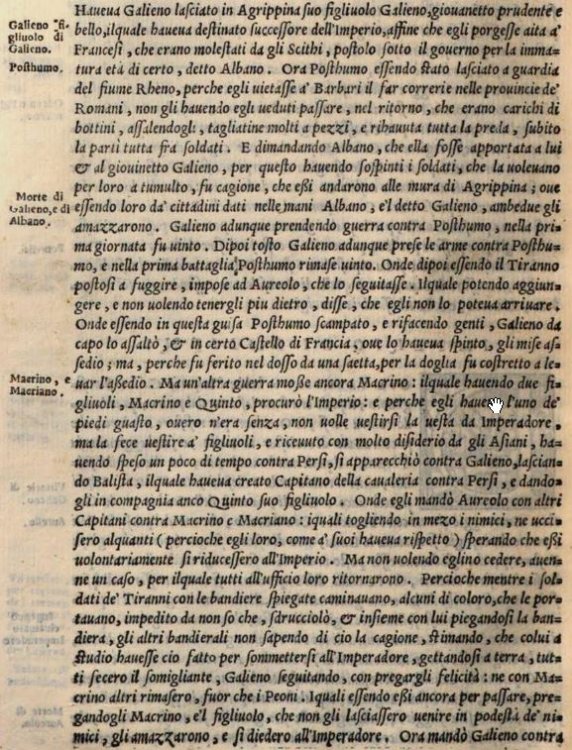 Haueua Galieno laſciato in Agrippina ſuo figliuolo Galieno,giouanetto prudente e
Galieno fi-
gliuolo di
Galieno.
bello,ilquale haueua deſtinato ſucceſſore dell'Imperio,affine che egli porgeſſe aita a'
Franceſi, che erano moleſtati da gli Scithi, poſtolo ſotto il gouerno per la imma=
Poſthumo.
tura età di certo, detto Albano. Ora Poſthumo eſſendo ſtato laſciato a guardia
del fiume Rheno, perche egli uietaſſe a' Barbari il far correrie nelle prouincie de'
Romani, non gli hauendo egli ueduti paſſare, nel ritorno, che erano carichi di
bottini, aſſalendogli, tagliatine molti a pezzi, e rihauuta tutta la preda, ſubito
la partì tutta fra ſoldati. E dimandando Albano, che ella foſſe apportata a lui
& al giouinetto Galieno, per queſto hauendo ſoſpinti i ſoldati, che la uoleuano
per loro a tumulto, fu cagione, che eßi andarono alle mura di Agrippina; oue
Morte di
Galieno,e di
Albano.
eſſendo loro da' cittadini dati nelle mani Albano, e'l detto Galieno, ambedue gli
amazzarono. Galieno adunque prendendo guerra contra Poſthumo, nella pri=
ma giornata fu uinto. Dipoi toſto Galieno adunque preſe le arme contra Poſthu=
mo, e nella prima battaglia, Poſthumo rimaſe uinto. Onde dipoi eſſendo il Tiranno
poſtoſi a fuggire, impoſe ad Aureolo, che lo ſeguitaſſe. Ilquale potendo aggiun=
gere, e non uolendo tenergli piu dietro, diſſe, che egli non lo poteua arriuare.
Onde eſſendo in queſta guiſa Poſthumo ſcampato, e rifacendo genti, Galieno da
capo lo aſſaltò, & in certo Caſtello di Francia, oue lo haueua ſpinto, gli miſe aſ=
ſedio; ma, perche fu ferito nel doſſo da una ſaetta,per la doglia fu coſtretto a le=
Macrino, e
Macriano.
uar l'aſſedio. Ma un'altra guerra moſſe ancora Macrino: ilquale hauendo due fi=
gliuoli, Macrino e Quinto, procurò l'Imperio: e perche egli l'uno de'
piedi guaſto, ouero n'era ſenza, non uolle ueſtirſi la ueſta da Imperadore,
ma la fece ueſtire a' figliuoli, e riceuuto con molto diſiderio da gli Aſiani, ha=
uendo ſpeſo un poco di tempo contra Perſi, ſi apparecchiò contra Galieno,laſcian=
do Baliſta, ilquale haueua creato Capitano della caualeria contra Perſi, e dando=
gli in compagnia anco Quinto ſuo figliuolo. Onde egli mandò Aureolo con altri
Capitani contra Macrino e Macriano: iquali togliendo in mezo i nimici, ne ucci=
ſero alquanti (percioche egli loro, come a' ſuoi haueua riſpetto) ſperando che eßi
uolontariamente ſi riduceſſero all'Imperio. Ma non uolendo eglino cedere, auen=
ne un caſo, per ilquale tutti all'ufficio loro ritornarono. Percioche mentre i ſol=
dati de' Tiranni con le bandiere ſpiegate caminauano, alcuni di coloro,che le por=
tauano, impedito da non ſo che, ſdrucciolò, & inſieme con lui piegandoſi la ban=
diera, gli altri bandierali non ſapendo di cio la cagione, ſtimando, che colui a
ſtudio haueſſe cio fatto per ſommetterſi all'Imperadore, gettandoſi a terra, tut=
ti ſecero il ſomigliante, Galieno ſeguitando, con pregargli felicità: ne con Ma=
crino altri rimaſero, fuor che i Peoni. Iquali eſſendo eßi ancora per paſſare, pre=
gandogli Macrino, e'l figliuolo, che non gli laſciaſſero uenire in podeſtà de' ni=
mici, gli amazzarono, e ſi diedero all'Imperadore. Ora mandò Galieno contra